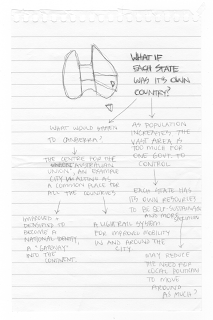 WHAT IF
EACH STATE
WAS ITS OWN
COUNTRY?
WHAT WOULD HAPPEN
TO CANBERRA?
AS POPULATION
INCREASES, THE
VAST AREA IS
TOO MUCH FOR
ONE GOVT. TO
CONTROL
THE CENTRE FOR THE
AUSTRALIAN
UNION', AN
CITY
A COMMON PLACE FOR
ALL THE COUNTRIES
EACH STATE HAS
ITS OWN RESOURCES
TO BE SELF-SUSTAINING
AND MORE
IMPROVED +
DENSIFIED TO
BECOME A
NATIONAL
A "GATEWAY"
INTO THE
CONTINENT.
A RAIL SYSTEM
FOR IMPROVED MOBILITY
IN AND AROUND THE
CITY
MAY REDUCE
THE NEED FOR
LOCAL
TO MOVE
AROUND
AS MUCH?